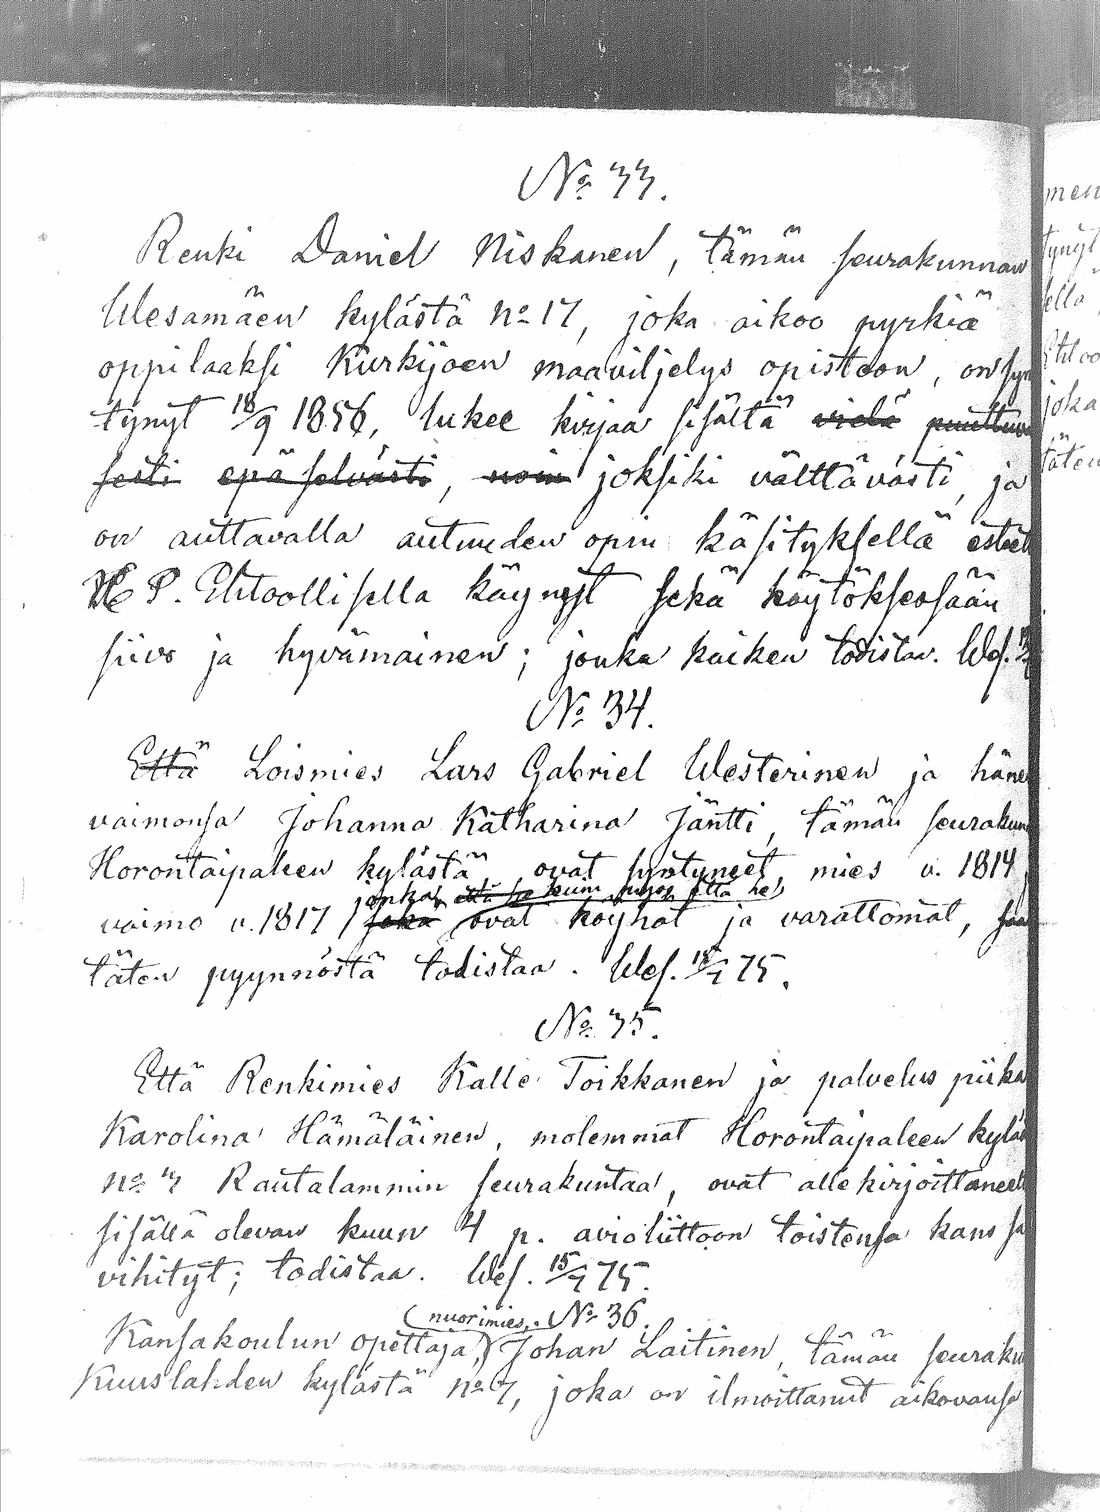 No 33.
Renki Daniel Niskanen, tämän seurakunnan
Wesamäen kylästä no 17, joka aikoo pyrkiä
oppilaaksi Kurkijoen maaviljelys opistoon, on syn
tynyt 18/9 1856, lukee kirjaa sisältä vielä puuttuvai
sesti epäselvästi, noin joksiki välttävästi, ja
on auttavalla autuuden opin käsityksellä esteet
H. P. Ehtoollisella käynyt sekä käytöksessään
siivo ja hyvämainen; jonka kaiken todistaa. Wes.
No 34.
Että Loismies Lars Gabriel Westerinen ja hänen
vaimonsa Johanna Katharina Jäntti, tämän seurakun
Horontaipaleen kylästä, ovat syntyneet, mies v. 1814,
jonka, että he
vaimo v. 1817, joka ovat köyhät ja varattomat, saa
täten pyynnöstä todistaa. Wes. 75.
No 35.
Että Renkimies Kalle Toikkanen ja palvelus piika
Karolina Hämäläinen, molemmat Horontaipaleen kyläs
no 3 Rautalammin seurakuntaa, ovat allekirjoittaneelt
sisällä olevan kuun 4 p. avioliittoon toistensa kanssa
vihityt; todistaa. Wes. 15/7 75.
(nuorimies, No 36.
Kansakoulun opettaja,) Johan Laitinen, tämän seuraku
Kuuslahden kylästä no 7, joka on ilmoittanut aikovansa
men
tynyt
ella
Ehtoo
joka
täten